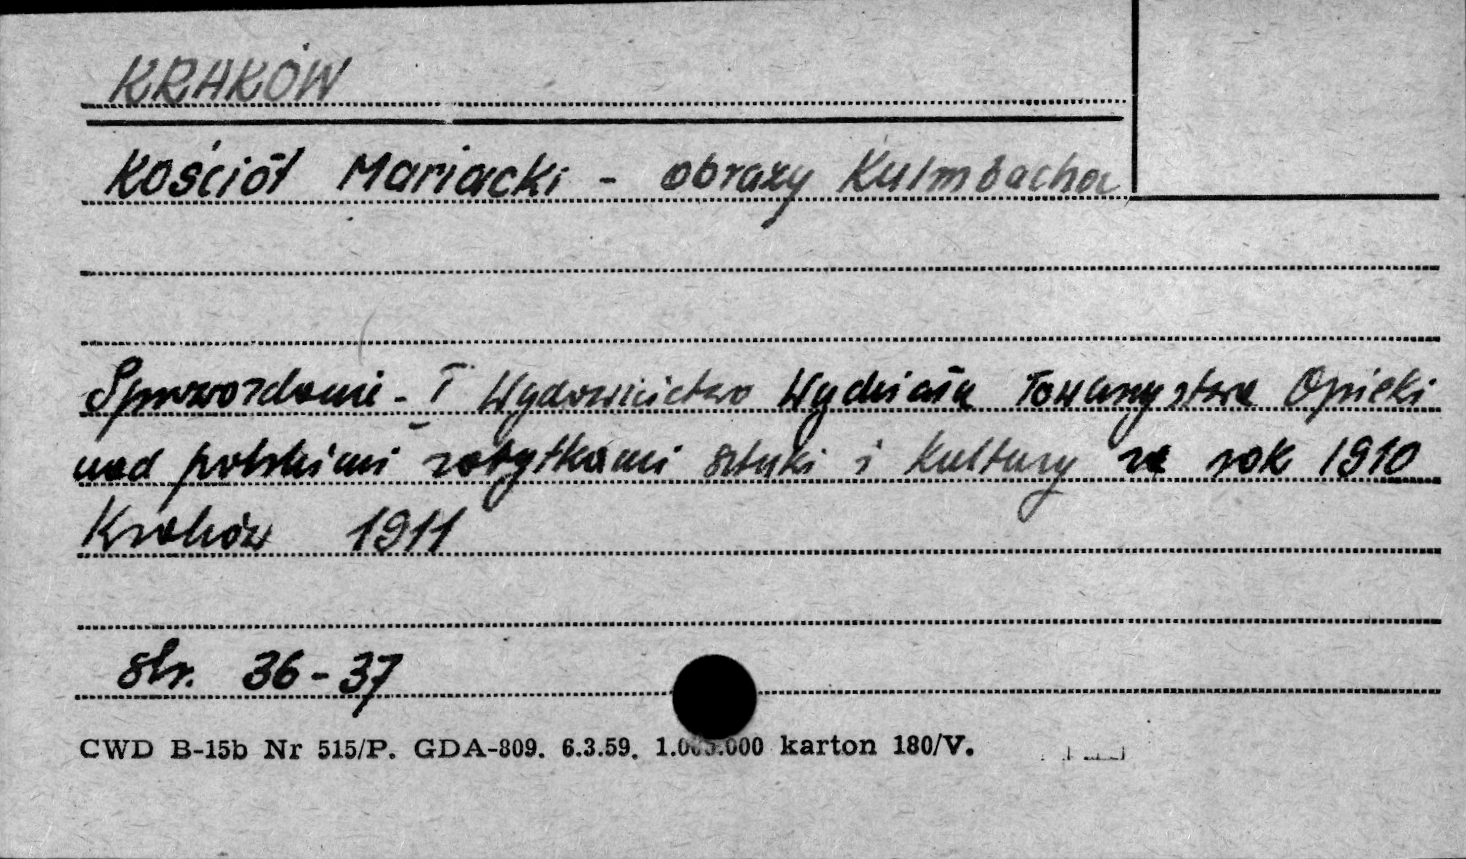 KRAKÓW
Kościół Mariacki - obrazy Kulmbacha
Sprawozdanie - I Wydawnictwo Wydziału Towarzystwa Opieki
nad polskimi zabytkami sztuki i kultury za rok 1910
Kraków 1911
str. 36-37
CWD B-15b Nr 515/P. GDA-809. 6.3.59. karton 180/V.